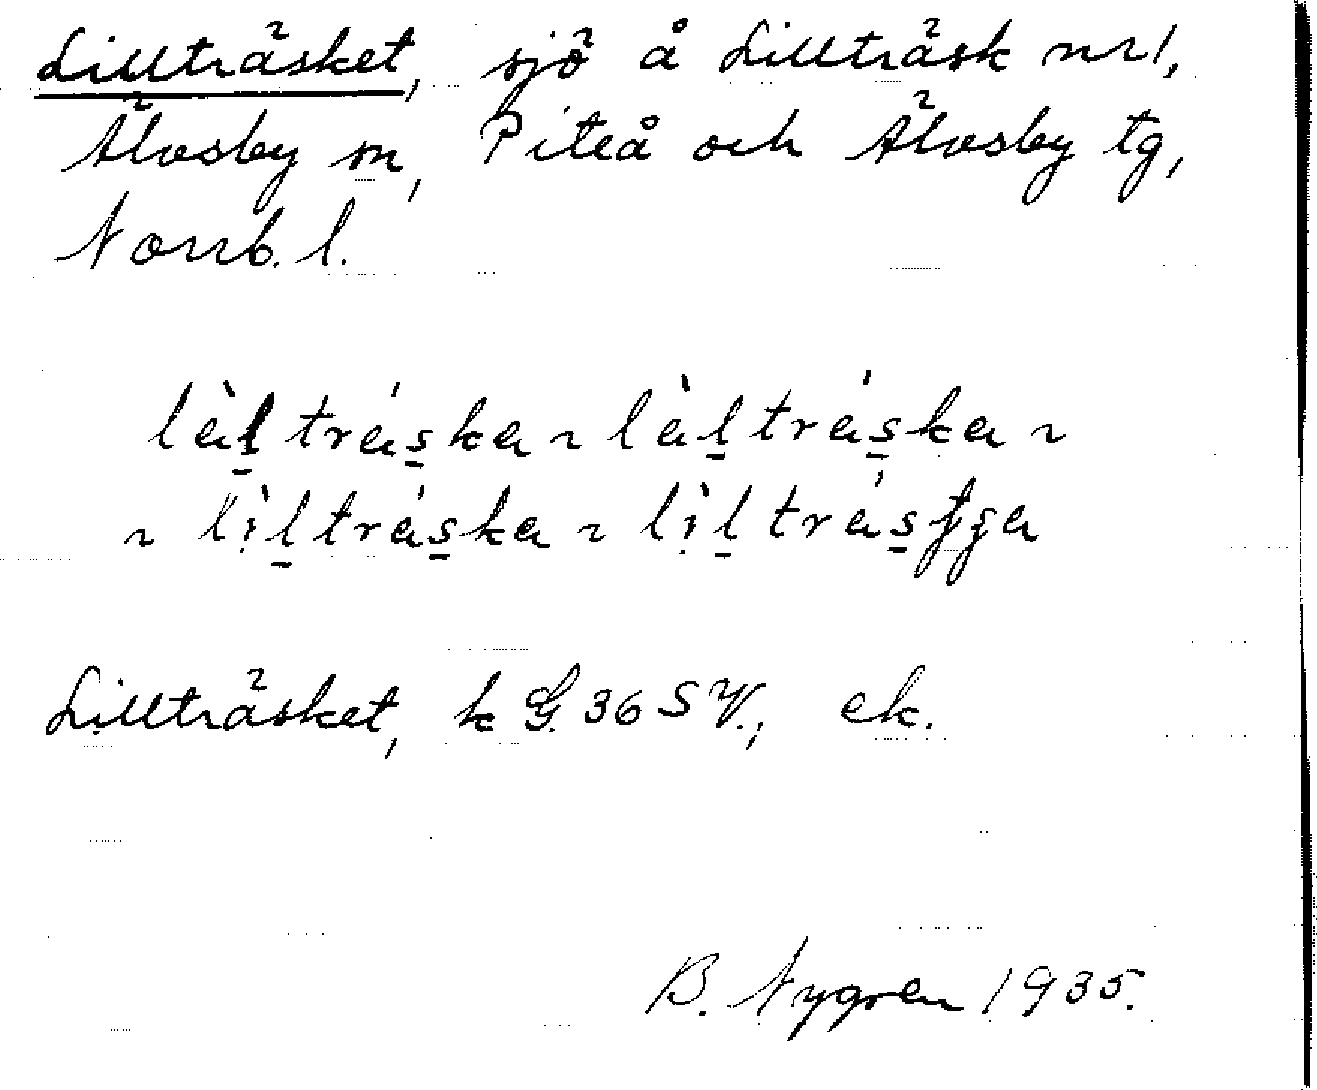 Lillträsket, sjö å Lillträsk nr 1,
Älvsby sn, Piteå och Älvsby tg,
Norrb. l.
lèl̠tráska ~ lèl̠tráska ~
~ lìl̠tráska ~ lìl̠trás̠
Lillträsket, k G. 36 SV., ek.
B. Nygren 1935.